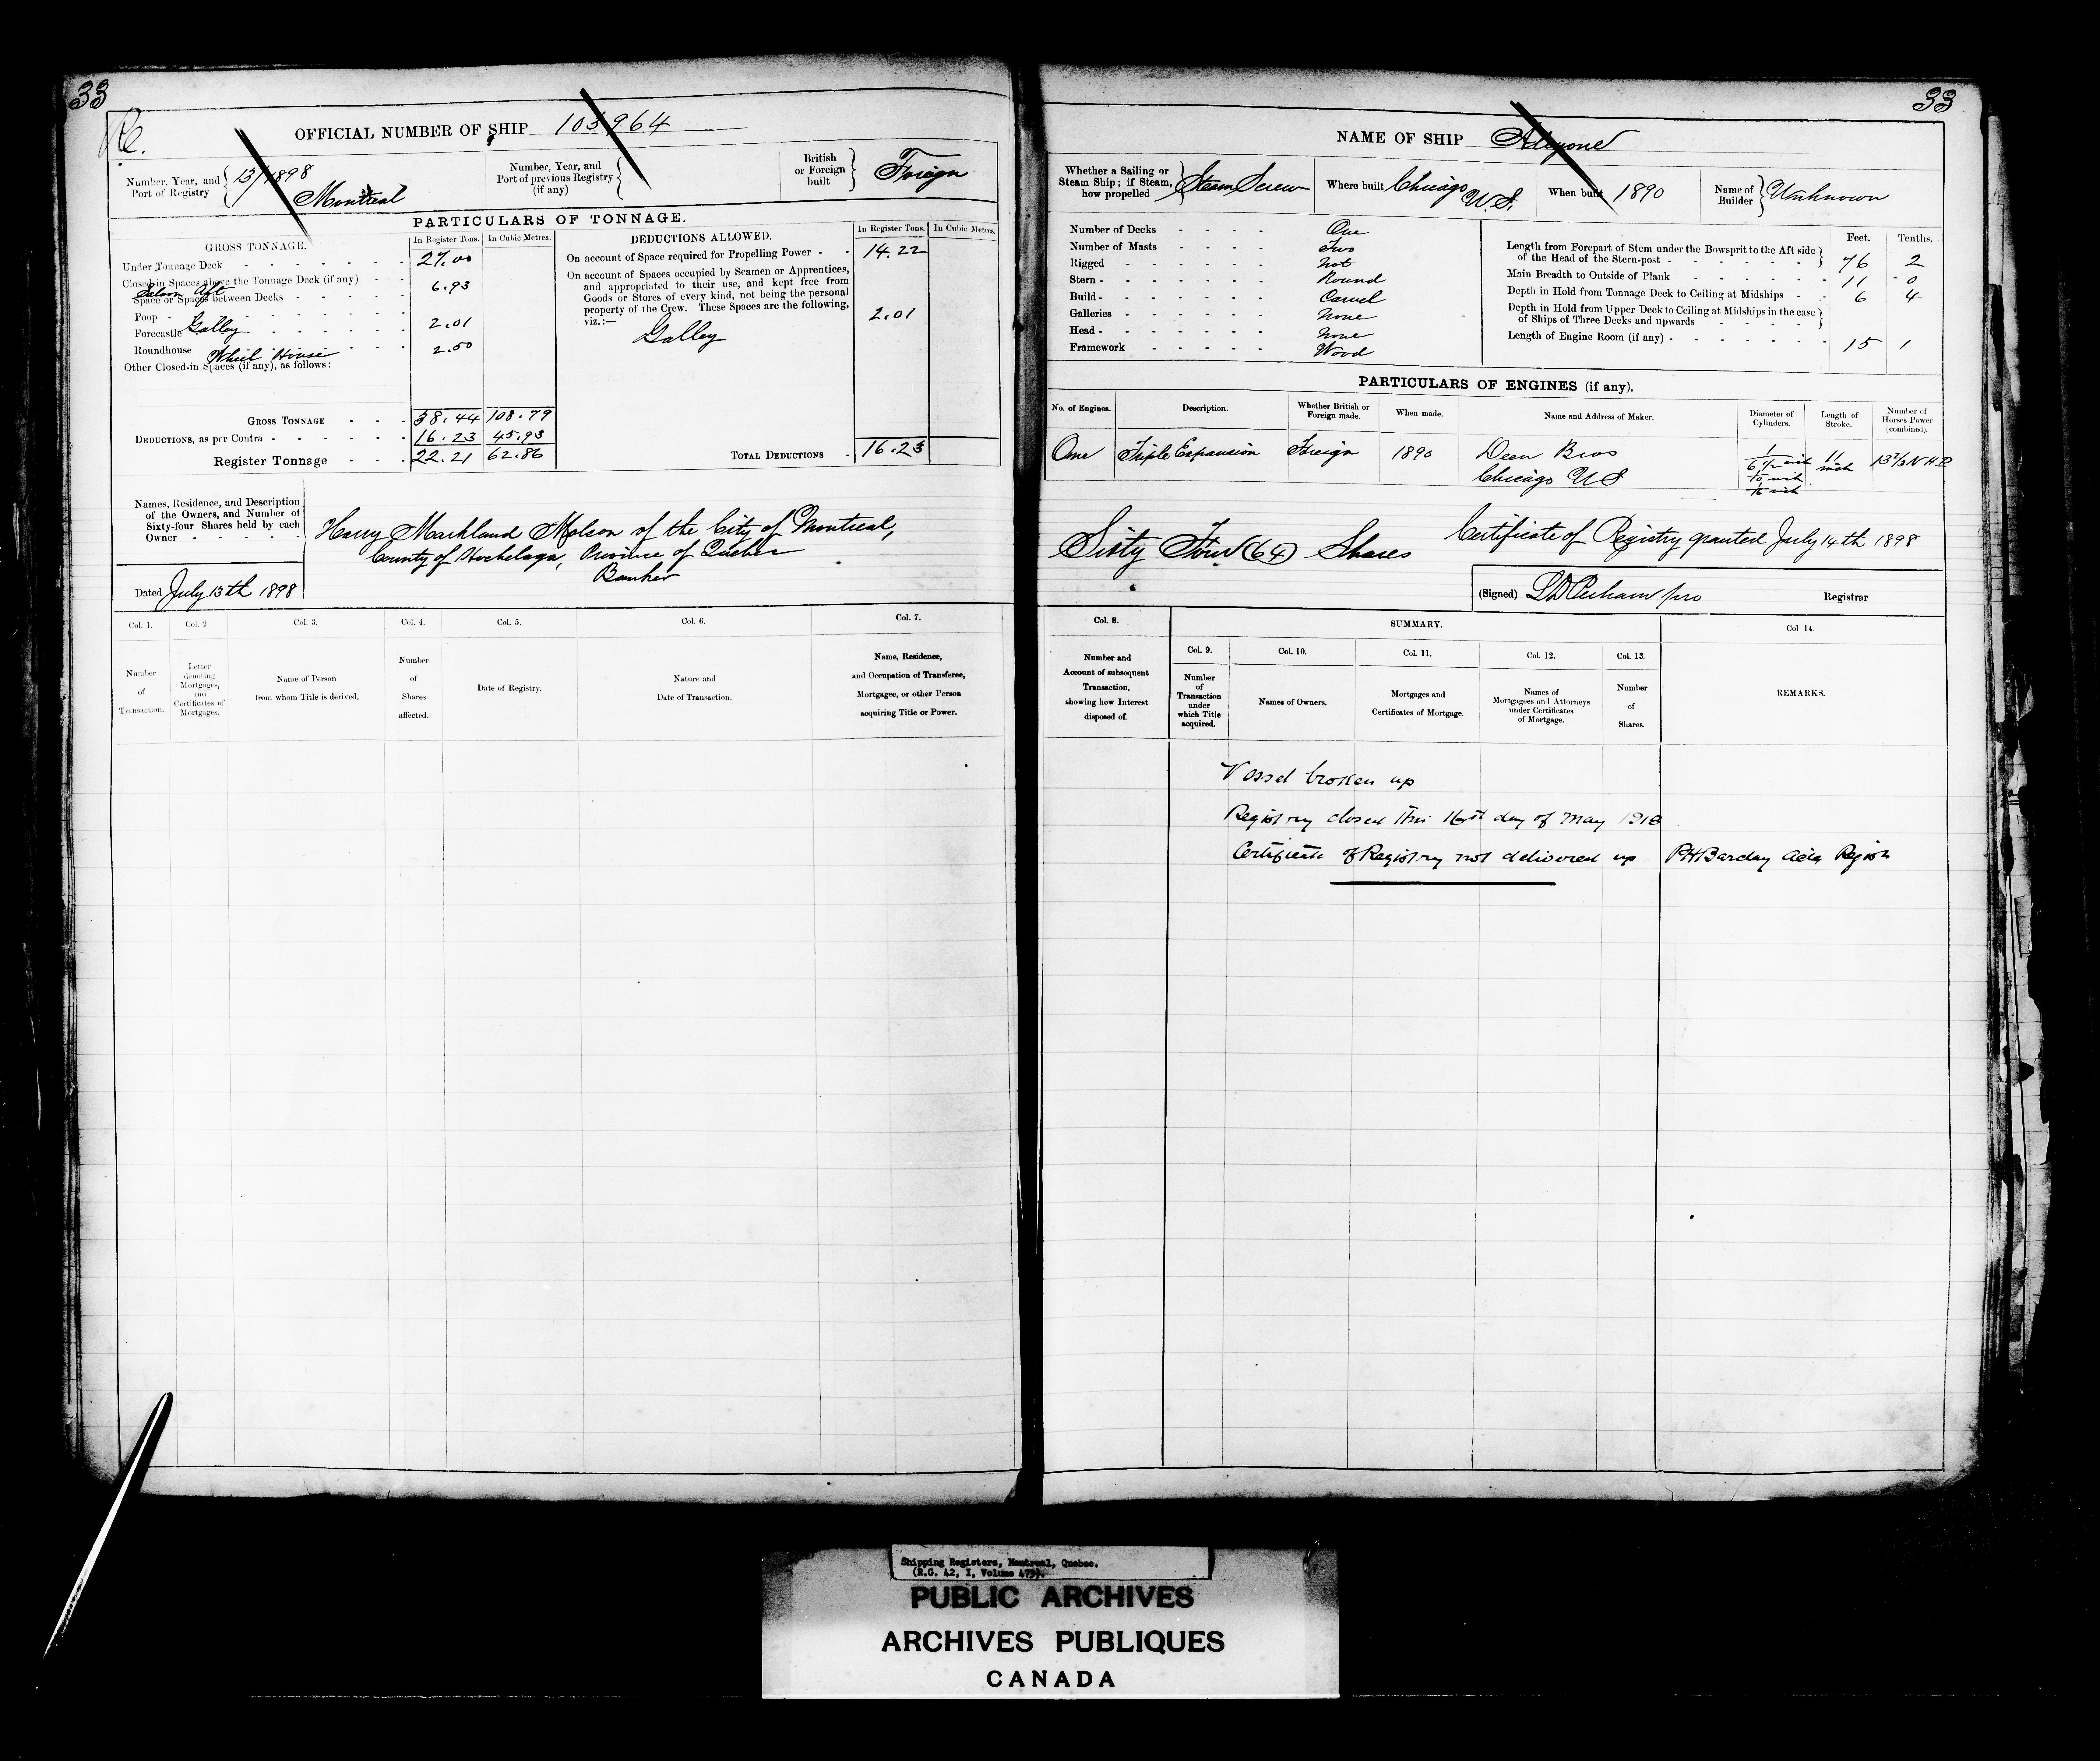 33
Re.
OFFICIAL NUMBER OF SHIP 103964
Number, Year, and Port of Registry 13/1898 Montreal
Number, Year, and Port of previous Registry (if any)
British or Foreign built Foreign
PARTICULARS OF TONNAGE.
GROSS TONNAGE. In Register Tons. In Cubic Metres.
Under Tonnage Deck 27.00
Closed-in Spaces above the Tonnage Deck (if any)
Saloon Aft 6.93
Space or Spaces between Decks
Poop
Forecastle Galley 2.01
Roundhouse Wheel House 2.50
Other Closed-in Spaces (if any), as follows:
GROSS TONNAGE 38.44 108.79
DEDUCTIONS, as per Contra 16.23 45.93
Register Tonnage 22.21 62.86
DEDUCTIONS ALLOWED. In Register Tons. In Cubic Metres.
On account of Space required for Propelling Power 14.22
On account of Spaces occupied by Seamen or Apprentices,
and appropriated to their use, and kept free from
Goods or Stores of every kind, not being the personal
property of the Crew. These Spaces are the following,
viz.:—
Galley 2.01
TOTAL DEDUCTIONS 16.23
Names, Residence, and Description
of the Owners, and Number of
Sixty-four Shares held by each
Owner
Harry Markland Molson of the City of Montreal,
County of Hochelaga, Province of Quebec
Banker
Dated July 13th 1898
Col. 1. Col. 2. Col. 3. Col. 4. Col. 5. Col. 6. Col. 7.
Number of Transaction.
Letter denoting Mortgages, and Certificates of Mortgages.
Name of Person from whom Title is derived.
Number of Shares affected.
Date of Registry.
Nature and Date of Transaction.
Name, Residence, and Occupation of Transferee, Mortgagee, or other Person acquiring Title or Power.
33
NAME OF SHIP Alcyone
Whether a Sailing or Steam Ship; if Steam, how propelled Steam Screw
Where built Chicago U.S.
When built 1890
Name of Builder Unknown
Number of Decks One
Number of Masts Two
Rigged Not
Stern Round
Build Carvel
Galleries None
Head None
Framework Wood
Feet. Tenths.
Length from Forepart of Stem under the Bowsprit to the Aft side
of the Head of the Stern-post 76 2
Main Breadth to Outside of Plank 11 0
Depth in Hold from Tonnage Deck to Ceiling at Midships 6 4
Depth in Hold from Upper Deck to Ceiling at Midships in the case
of Ships of Three Decks and upwards
Length of Engine Room (if any) 15 1
PARTICULARS OF ENGINES (if any).
No. of Engines. Description. Whether British or Foreign made. When made. Name and Address of Maker. Diameter of Cylinders. Length of Stroke. Number of Horses Power (combined).
One Triple Expansion Foreign 1890 Dean Bros
Chicago US
1
6 1/2 inch
10 inch
16 inch
11 inch
13 2/3 NHP
Sixty Four (64) Shares
Certificate of Registry granted July 14th 1898
(Signed) Registrar
Col. 8. SUMMARY. Col 14.
Col. 9. Col. 10. Col. 11. Col. 12. Col. 13.
Number and Account of subsequent Transaction, showing how Interest disposed of.
Number of Transaction under which Title acquired.
Names of Owners.
Mortgages and Certificates of Mortgage.
Names of Mortgagees and Attorneys under Certificates of Mortgage.
Number of Shares.
REMARKS.
Vessel broken up
Registry closed this 16th day of May 1918
Certificate of Registry not delivered up PH Barclay Actg Registr
Shipping Registers, Montreal, Quebec.
(R.G. 42, I, Volume 475).
PUBLIC ARCHIVES
ARCHIVES PUBLIQUES
CANADA